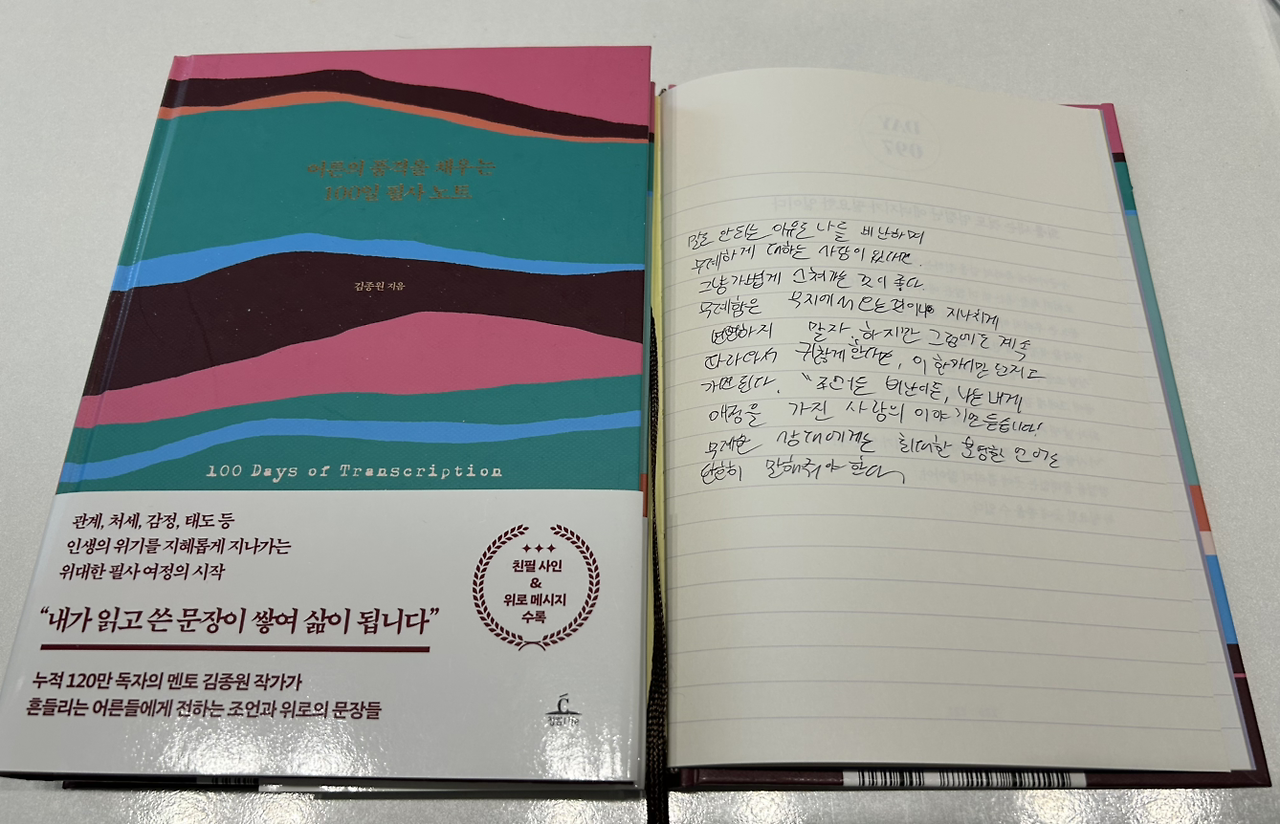 어른의 품격을 채우는
100일 필사 노트
김종원 지음
100 Days of Transcription
관계, 처세, 감정, 태도 등
인생의 위기를 지혜롭게 지나가는
위대한 필사 여정의 시작
“내가 읽고 쓴 문장이 쌓여 삶이 됩니다”
누적 120만 독자의 멘토 김종원 작가가
흔들리는 어른들에게 전하는 조언과 위로의 문장들
친필 사인
&
위로 메시지
수록
DAY
097
말도 안되는 이유로 나를 비난하며
무례하게 대하는 사람이 있다면
그냥 가볍게 스쳐가는 것이 좋다.
무례함은 무지에서 오는 것이니 지나치게
하지 말자. 하지만 그럼에도 계속
따라와서 귀찮게 한다면, 이 한마디만 던지고
가면 된다. “조언이든 비난이든, 나는 내게
애정을 가진 사람의 이야기만 듣습니다!
무례한 상대에게는 최대한 분명한 언어로
단호히 말해줘야 한다.